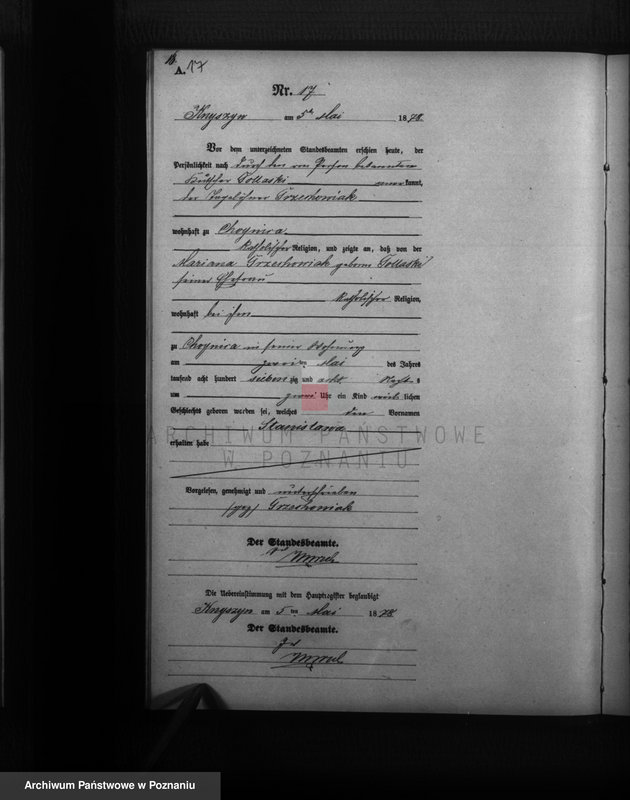 A. 17
Nr. 17
Knyszyn am 5ten Mai 1878.
Vor dem unterzeichneten Standesbeamten erschien heute, der
Persönlichkeit nach durch den von Person bekannten
Kutscher kannt,
der Tagelöhner Trzechowiak
wohnhaft zu Choynica
katholischer Religion, und zeigte an, daß von der
Mariana Trzechowiak geborne
seiner Ehefrau
katholischer Religion,
wohnhaft bei ihm
zu Choynica in seiner Wohnung
am zweiten Mai des Jahres
tausend acht hundert siebenzig und acht Nachts
um Uhr ein Kind weiblichen
Geschlechts geboren worden sei, welches den Vornamen
Stanislawa
erhalten habe
Vorgelesen, genehmigt und unterschrieben
(gez) Trzechowiak
Der Standesbeamte.
Die Uebereinstimmung mit dem Hauptregister beglaubigt
Knyszyn am 5ten Mai 1878
Der Standesbeamte.
ARCHIWUM PAŃSTWOWE
W POZNANIU
Archiwum Państwowe w Poznaniu